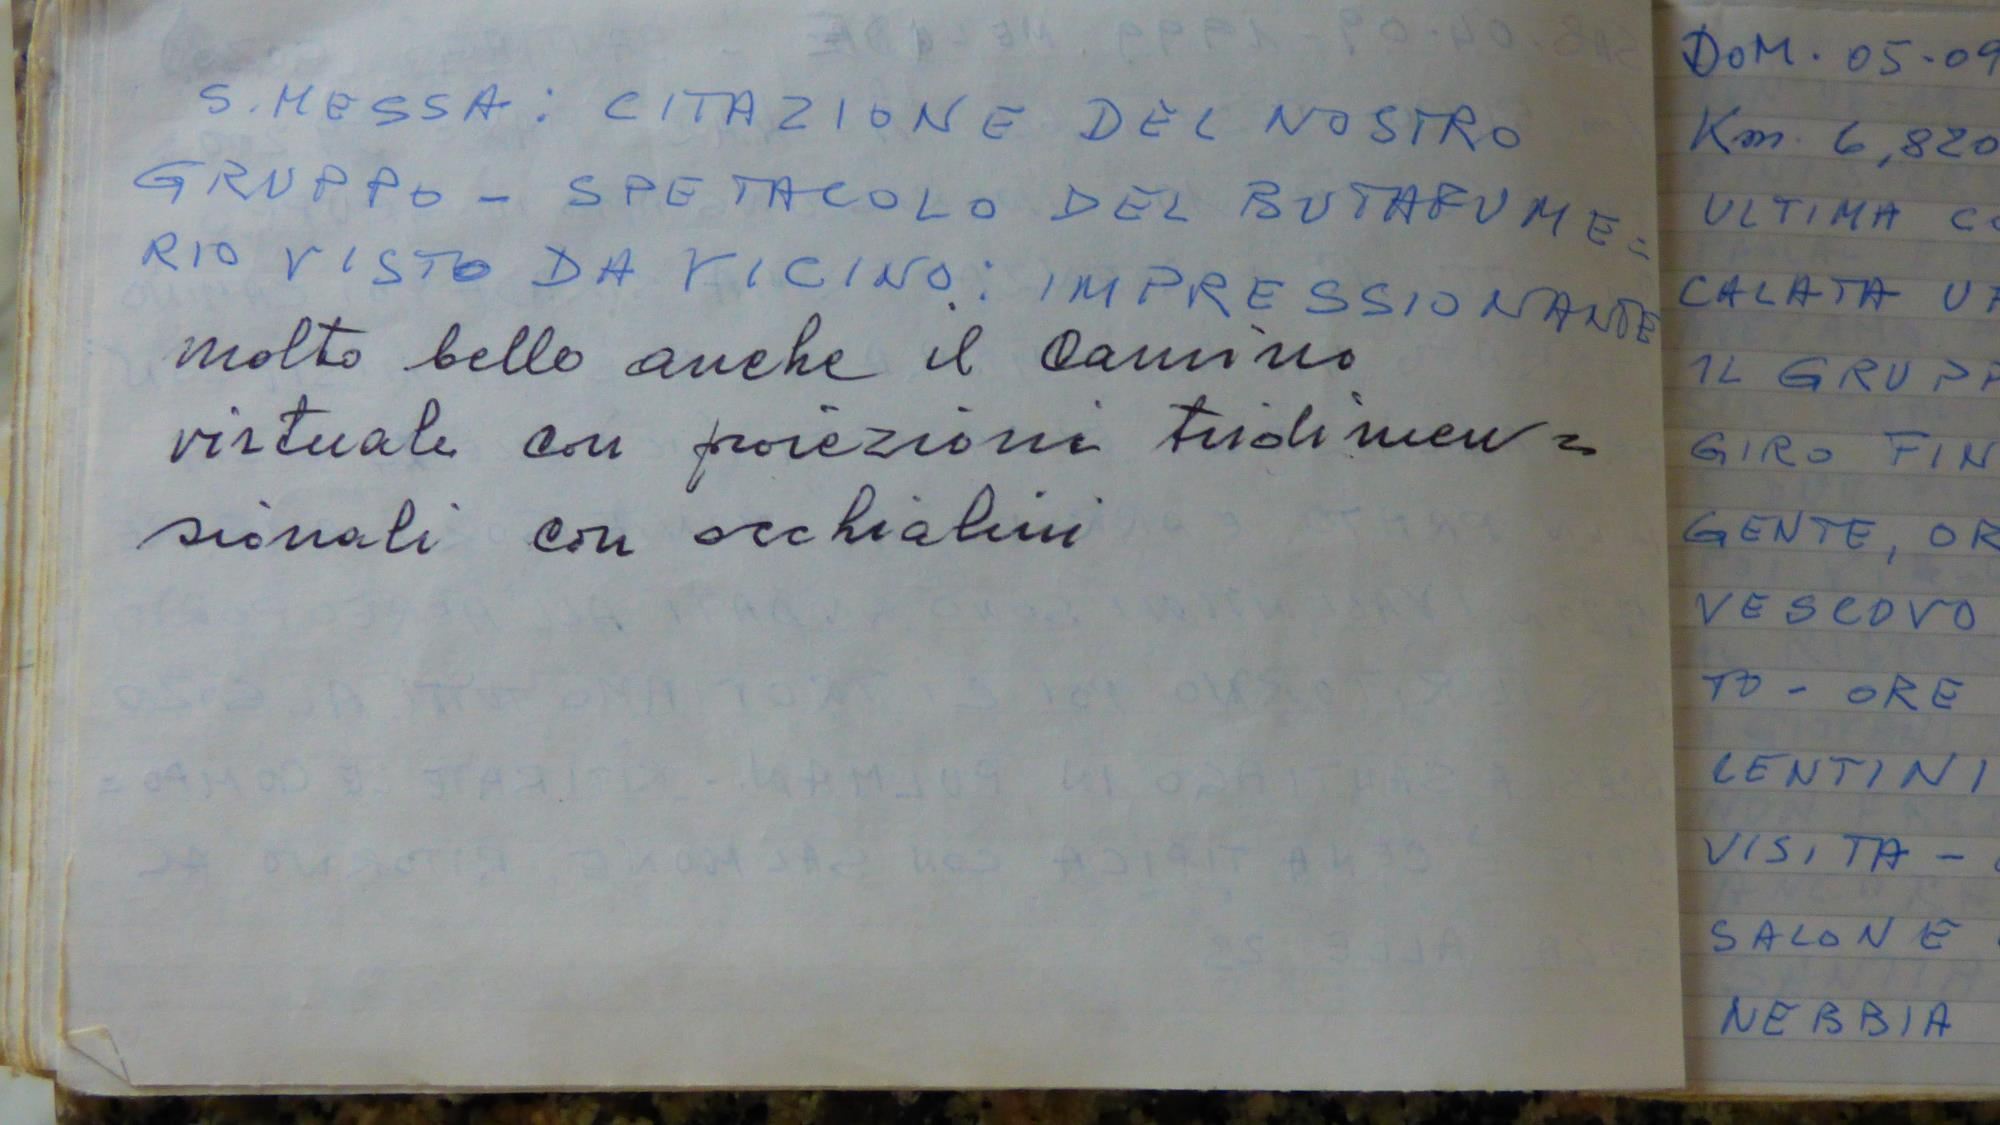 S. MESSA: CITAZIONE DEL NOSTRO
GRUPPO - SPETACOLO DEL BUTAFUME=
RIO VISTO DA VICINO: IMPRESSIONANTE
molto bello anche il Camino
virtuale con proiezioni tridimen=
sionali con occhialini
DOM. 05-09
Km. 6,820
ULTIMA CO
CALATA
IL GRUPP
GIRO FIN
GENTE, OR
VESCOVO
TO - ORE
LENTINI
VISITA -
SALONE
NEBBIA